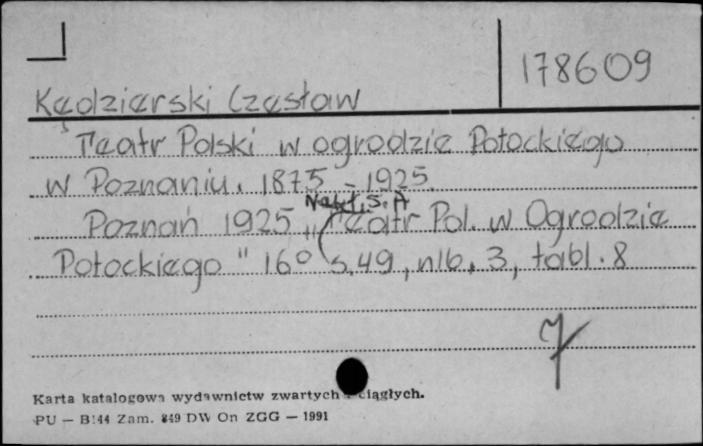 178609
Kędzierski Czesław
Teatr Polski w ogrodzie Potockiego
w Poznaniu. 1875 - 1925.
Nakł. S. A
Poznań 1925 „Teatr Pol. w Ogrodzie
Potockiego" 16° s. 49, nlb. 3, tabl. 8
Karta katalogowa wydawnictw zwartych i ciągłych.
PU — B144 Zam. 849 DW On ZGG — 1991